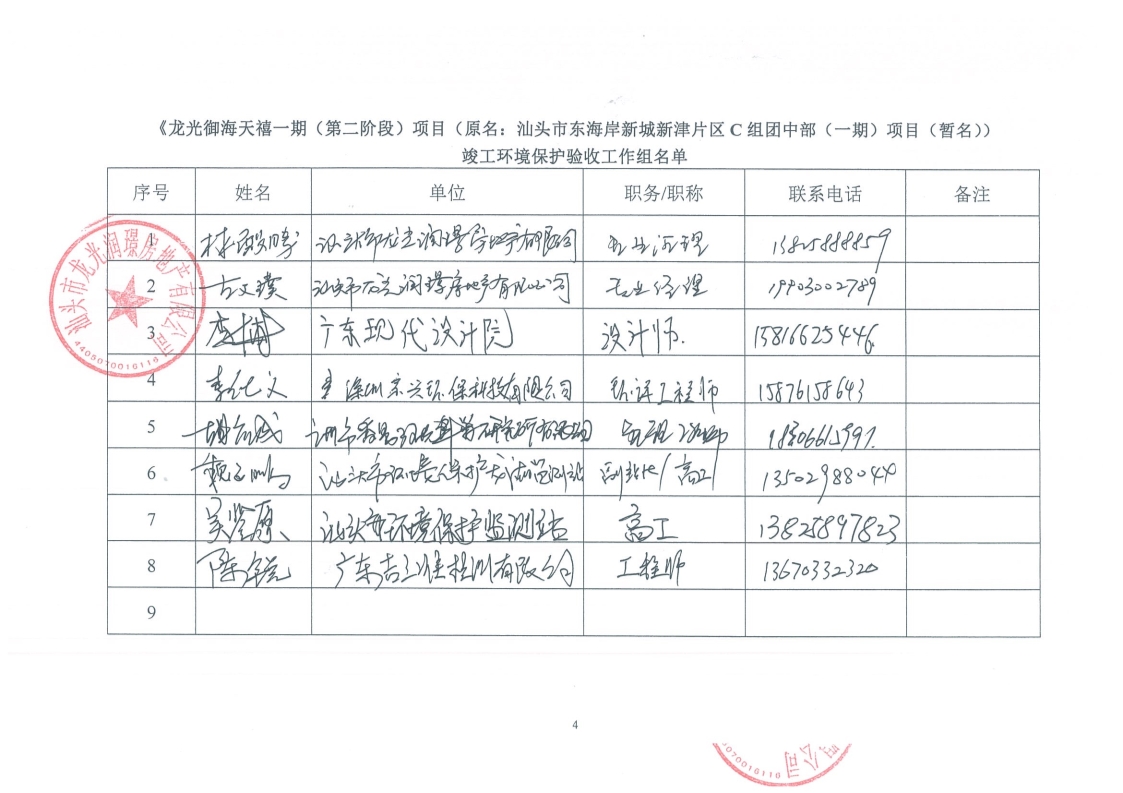 《龙光御海天禧一期（第二阶段）项目（原名：汕头市东海岸新城新津片区C组团中部（一期）项目（暂名））
竣工环境保护验收工作组名单
序号 姓名 单位 职务/职称 联系电话 备注
1 汕头市龙光润璟房地产有限公司 专业经理 13825888859
2 古文璞 汕头市龙光润璟房地产有限公司 专业经理 19903002789
3 李博 广东现代设计院 设计师. 15816625446
4 李化文 深圳宗兴环保科技有限公司 环评工程师 15876158643
5 工程师
6 汕头市环境保护监测站 副站长/高工 13502988044
7 吴鉴原 汕头市环境保护监测站 高工 13825897823
8 陈锐 广东吉之准检测有限公司 工程师 13670332320
9
汕头市龙光润璟房地产有限公司
4405070016116
4
公司
070016116